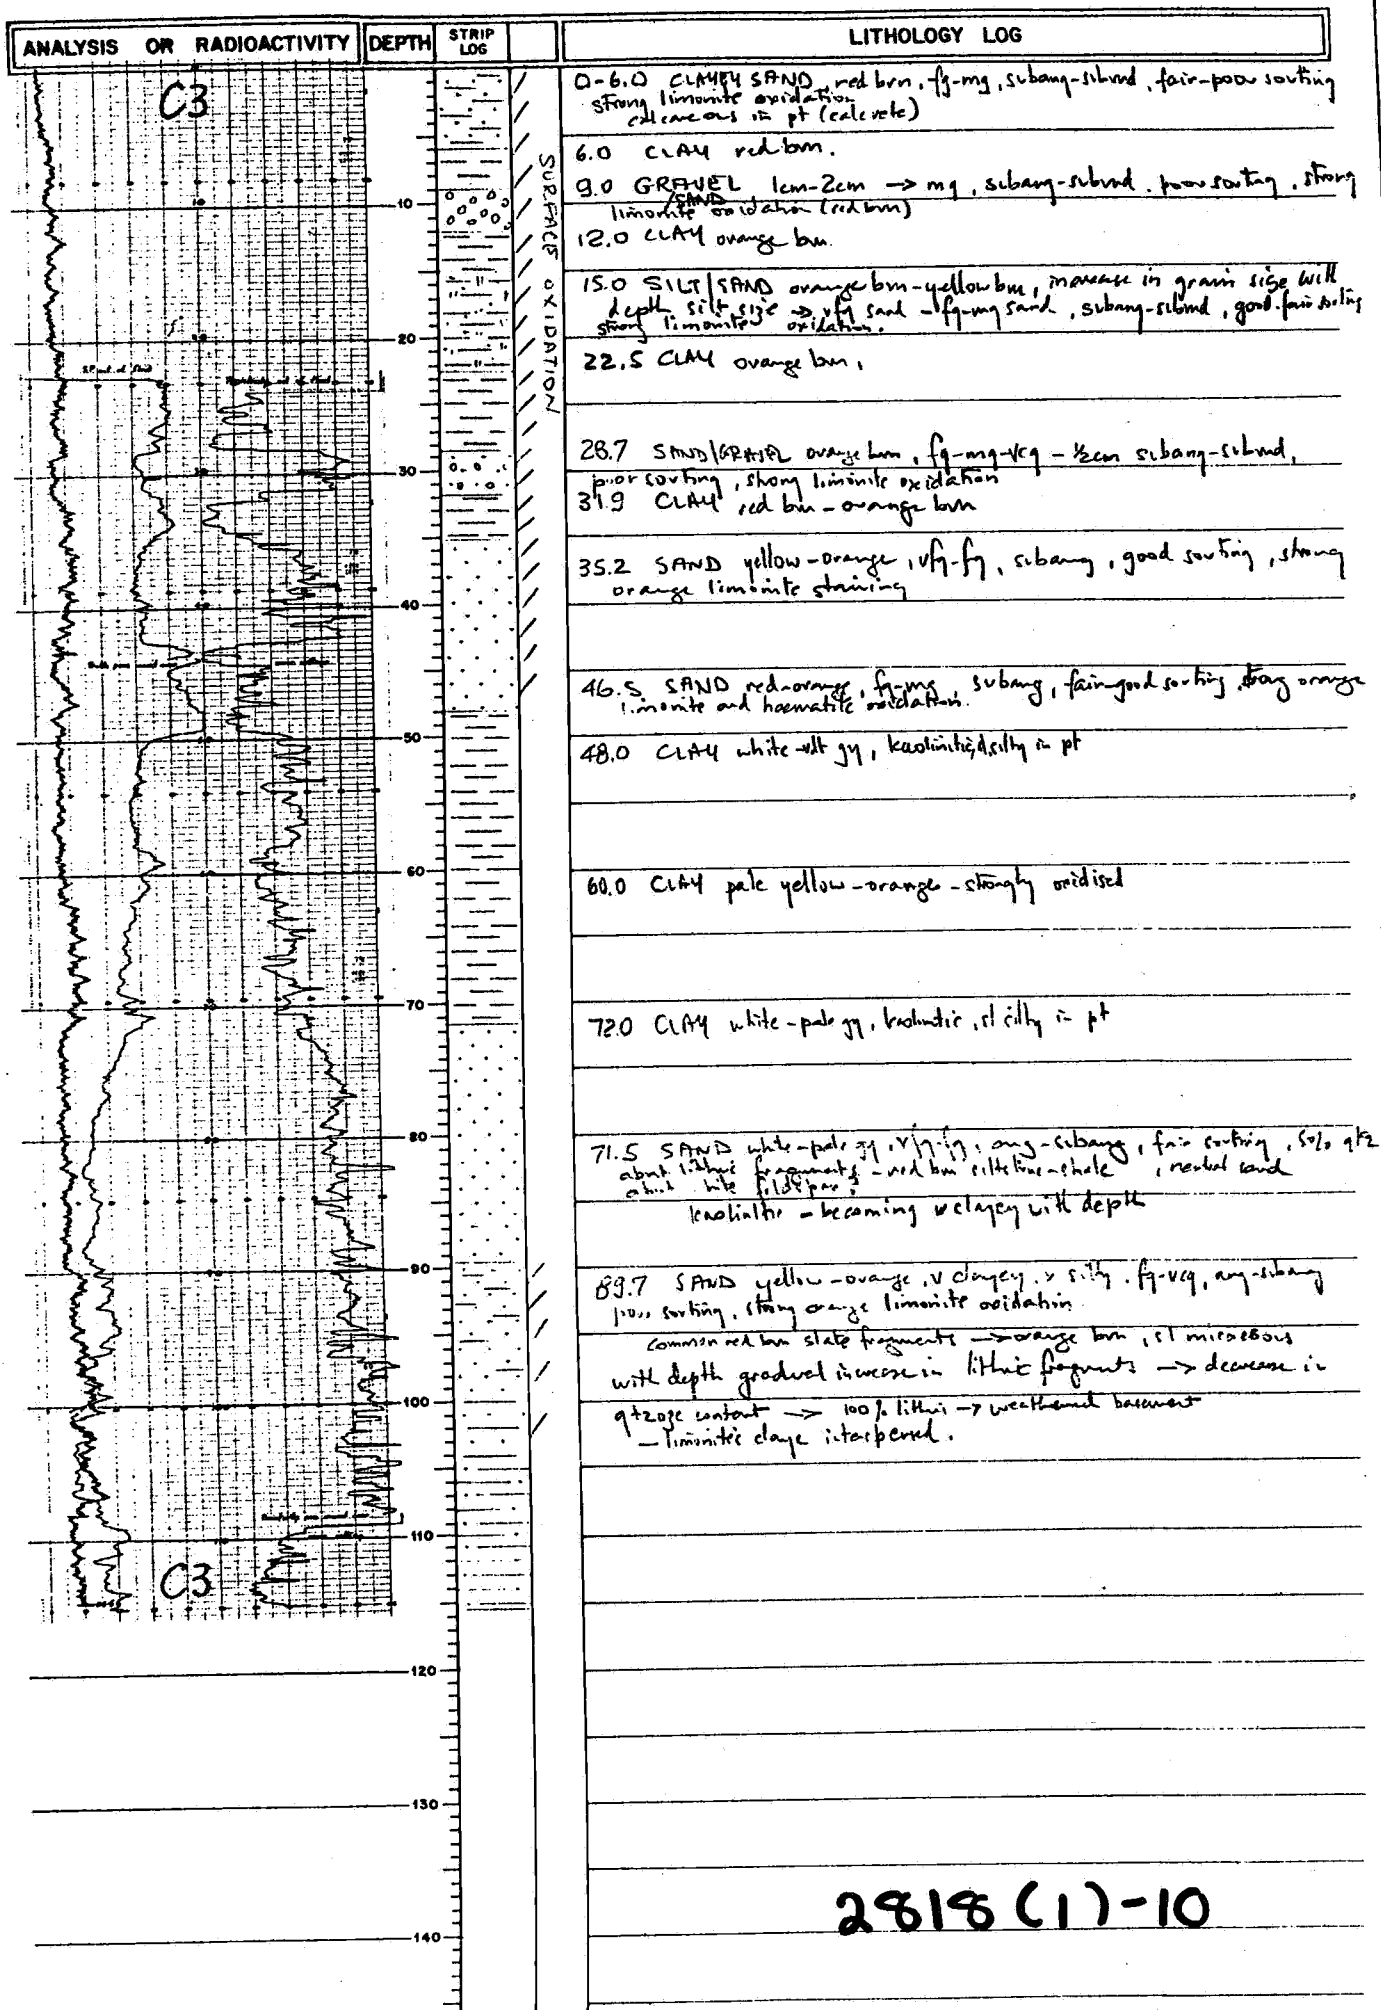 ANALYSIS OR RADIOACTIVITY
DEPTH
STRIP LOG
LITHOLOGY LOG
C3
0-6.0 CLAYEY SAND, red brn, fg-mg, subang-subrnd, fair-poor sorting
strong limonite oxidation
calcareous in pt (calcrete)
6.0 CLAY red brn.
9.0 GRAVEL/SAND 1cm-2cm -> mg, subang-subrnd. poor sorting, strong
limonite oxidation (red brn)
12.0 CLAY orange brn.
15.0 SILT/SAND orange brn-yellow brn, increase in grain size with
depth silt size -> vfg sand - fg-mg sand, subang-subrnd, good-fair sorting
strong limonite oxidation.
22.5 CLAY orange brn,
28.7 SAND/GRAVEL orange brn, fg-mg-vcg - ½cm subang-subrnd,
poor sorting, strong limonite oxidation
31.9 CLAY red brn-orange brn
35.2 SAND yellow-orange, vfg-fg, subang, good sorting, strong
orange limonite staining
46.5 SAND red-orange, fg-mg, subang, fair-good sorting strong orange
limonite and haematite oxidation.
48.0 CLAY white-vlt gy, kaolinitic, silty in pt
60.0 CLAY pale yellow-orange-strongly oxidised
72.0 CLAY white-pale gy, kaolinitic, sl silty in pt
71.5 SAND white-pale gy, vfg-fg, ang-subang, fair sorting, 50% qtz
abnt lithic fragments - red brn siltstone-shale, neutral sand
abnt white feldspar?
kaolinitic - becoming v clayey with depth
89.7 SAND yellow-orange, v clayey, v silty. fg-vcg, ang-subang
poor sorting, strong orange limonite oxidation
common red brn slate fragments -> orange brn, sl micaceous
with depth gradual increase in lithic fragments -> decrease in
qtzoze content -> 100% lithic -> weathered basement
- limonitic clays interspersed.
SURFACE OXIDATION
10
20
30
40
50
60
70
80
90
100
110
120
130
140
C3
2818(1)-10